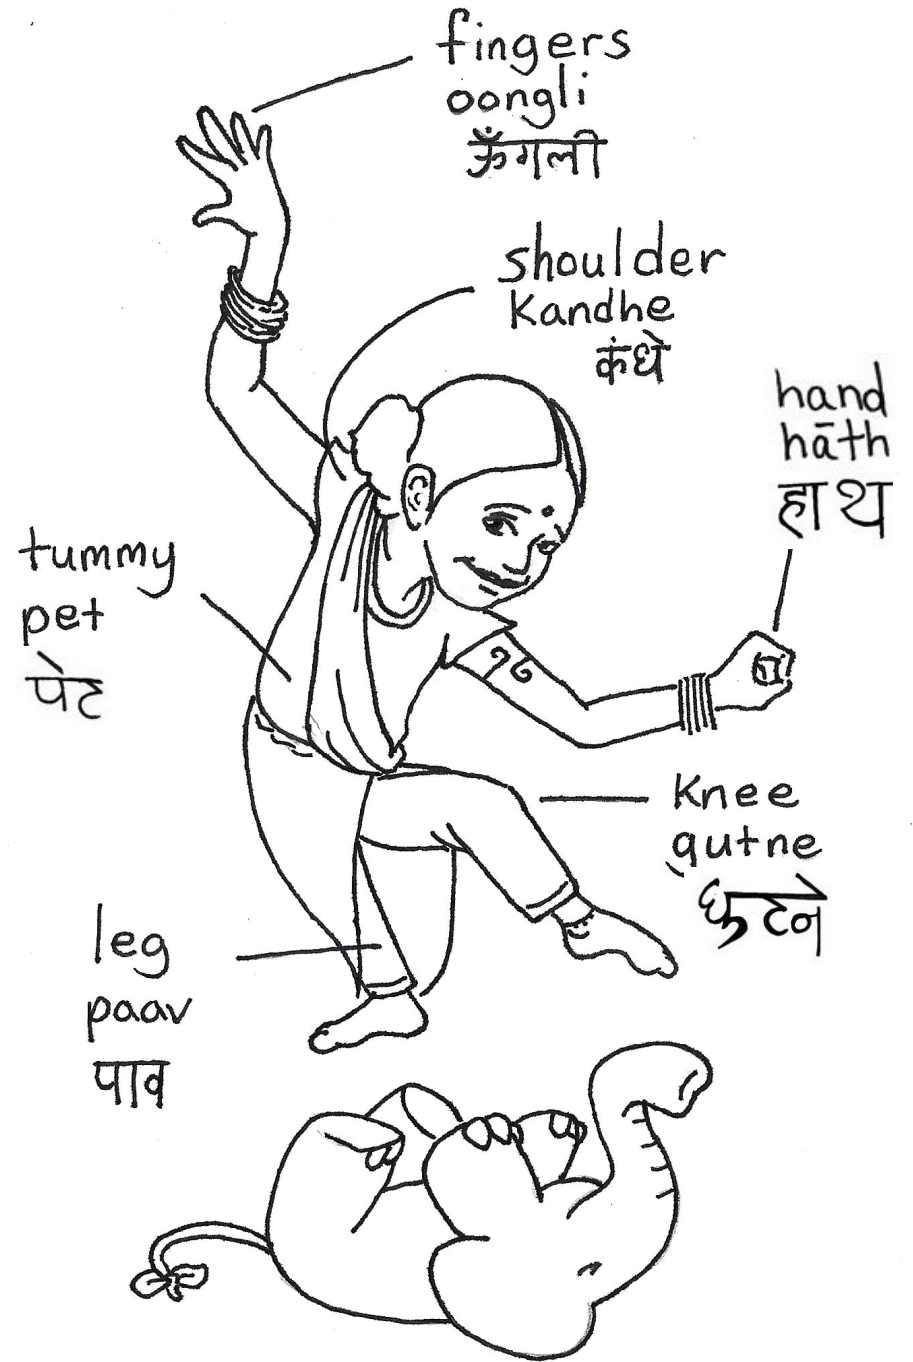 fingers
oongli
ऊँगली
shoulder
Kandhe
कंधे
hand
hāth
हाथ
tummy
pet
पेट
Knee
gutne
घुटने
leg
paav
पाव